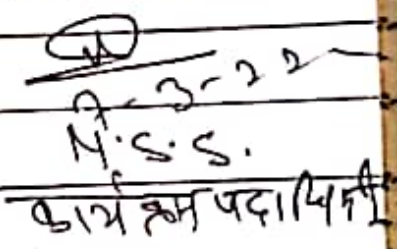 7-3-22
N.S.S.
कार्यक्रम पदाधिकारी